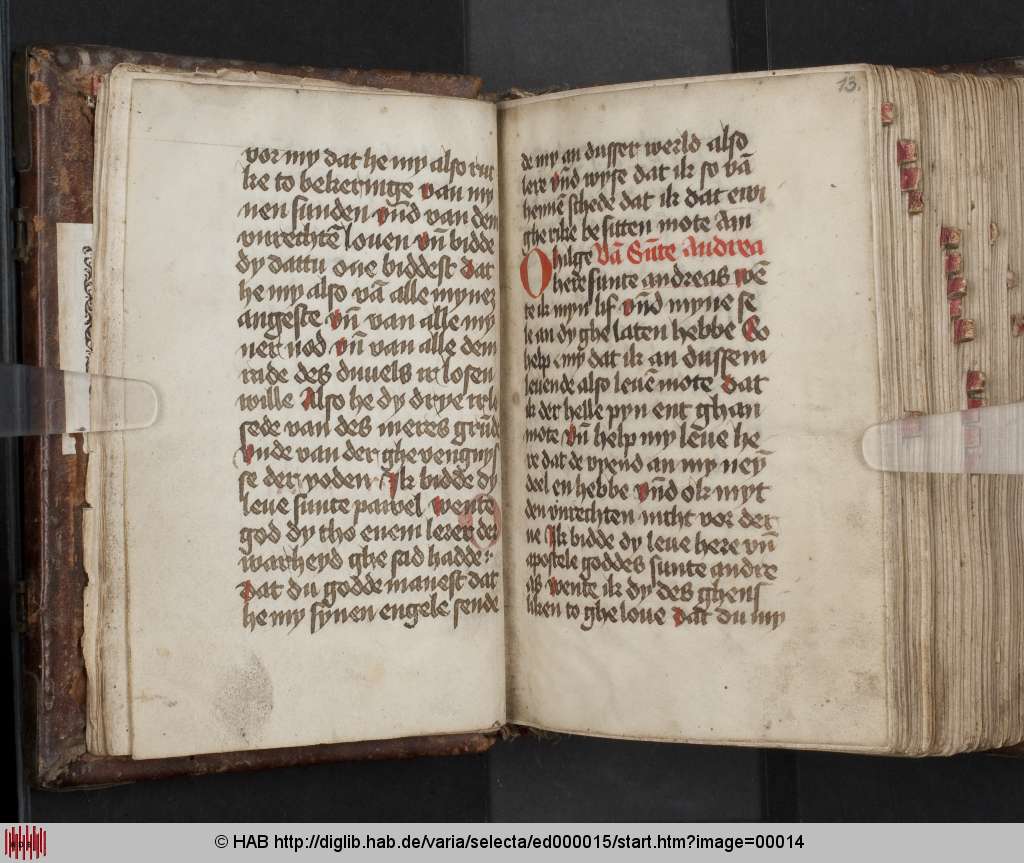 vor my dat he my also ruc
ke to bekeringe van my
nen sunden vñd van den
vnrechtē louen vñ bidde
dy dattu one biddest dat
he my also vā alle mynez
angeste vñ van alle my
ner nod vñ van alle dem
rade des duuels irlosen
wille Also he dy drye irlo
sede van des meres grūd
vnde van der ghevengnys
se der yoden Ik bidde dy
leue sunte pawel wente
god dy tho enem lerer der
warheyd ghe sad hadde
dat du godde manest dat
he my synen engele sende
13.
de my an dusser werld also
lere vñd wyse dat ik so vā
hennē schede dat ik dat ewi
ghe rike be sitten mote Am
O hilge Uā Sūte Andrea
here sunte andreas wē
te ik myn lif vñd myne se
le an dy ghe laten hebbe So
help my dat ik an dussem
leuende also leuē mote dat
ik der helle pyn ent ghan
mote vñ help my leue he
re dat de vyend an my neȳ
deel en hebbe vñd ok myt
den vnrechten nicht vor der
ue Ik bidde dy leue here vñ
apostele goddes sunte andre
as wente ik dy des ghens
liken to ghe loue dat du my
© HAB http://diglib.hab.de/varia/selecta/ed000015/start.htm?image=00014